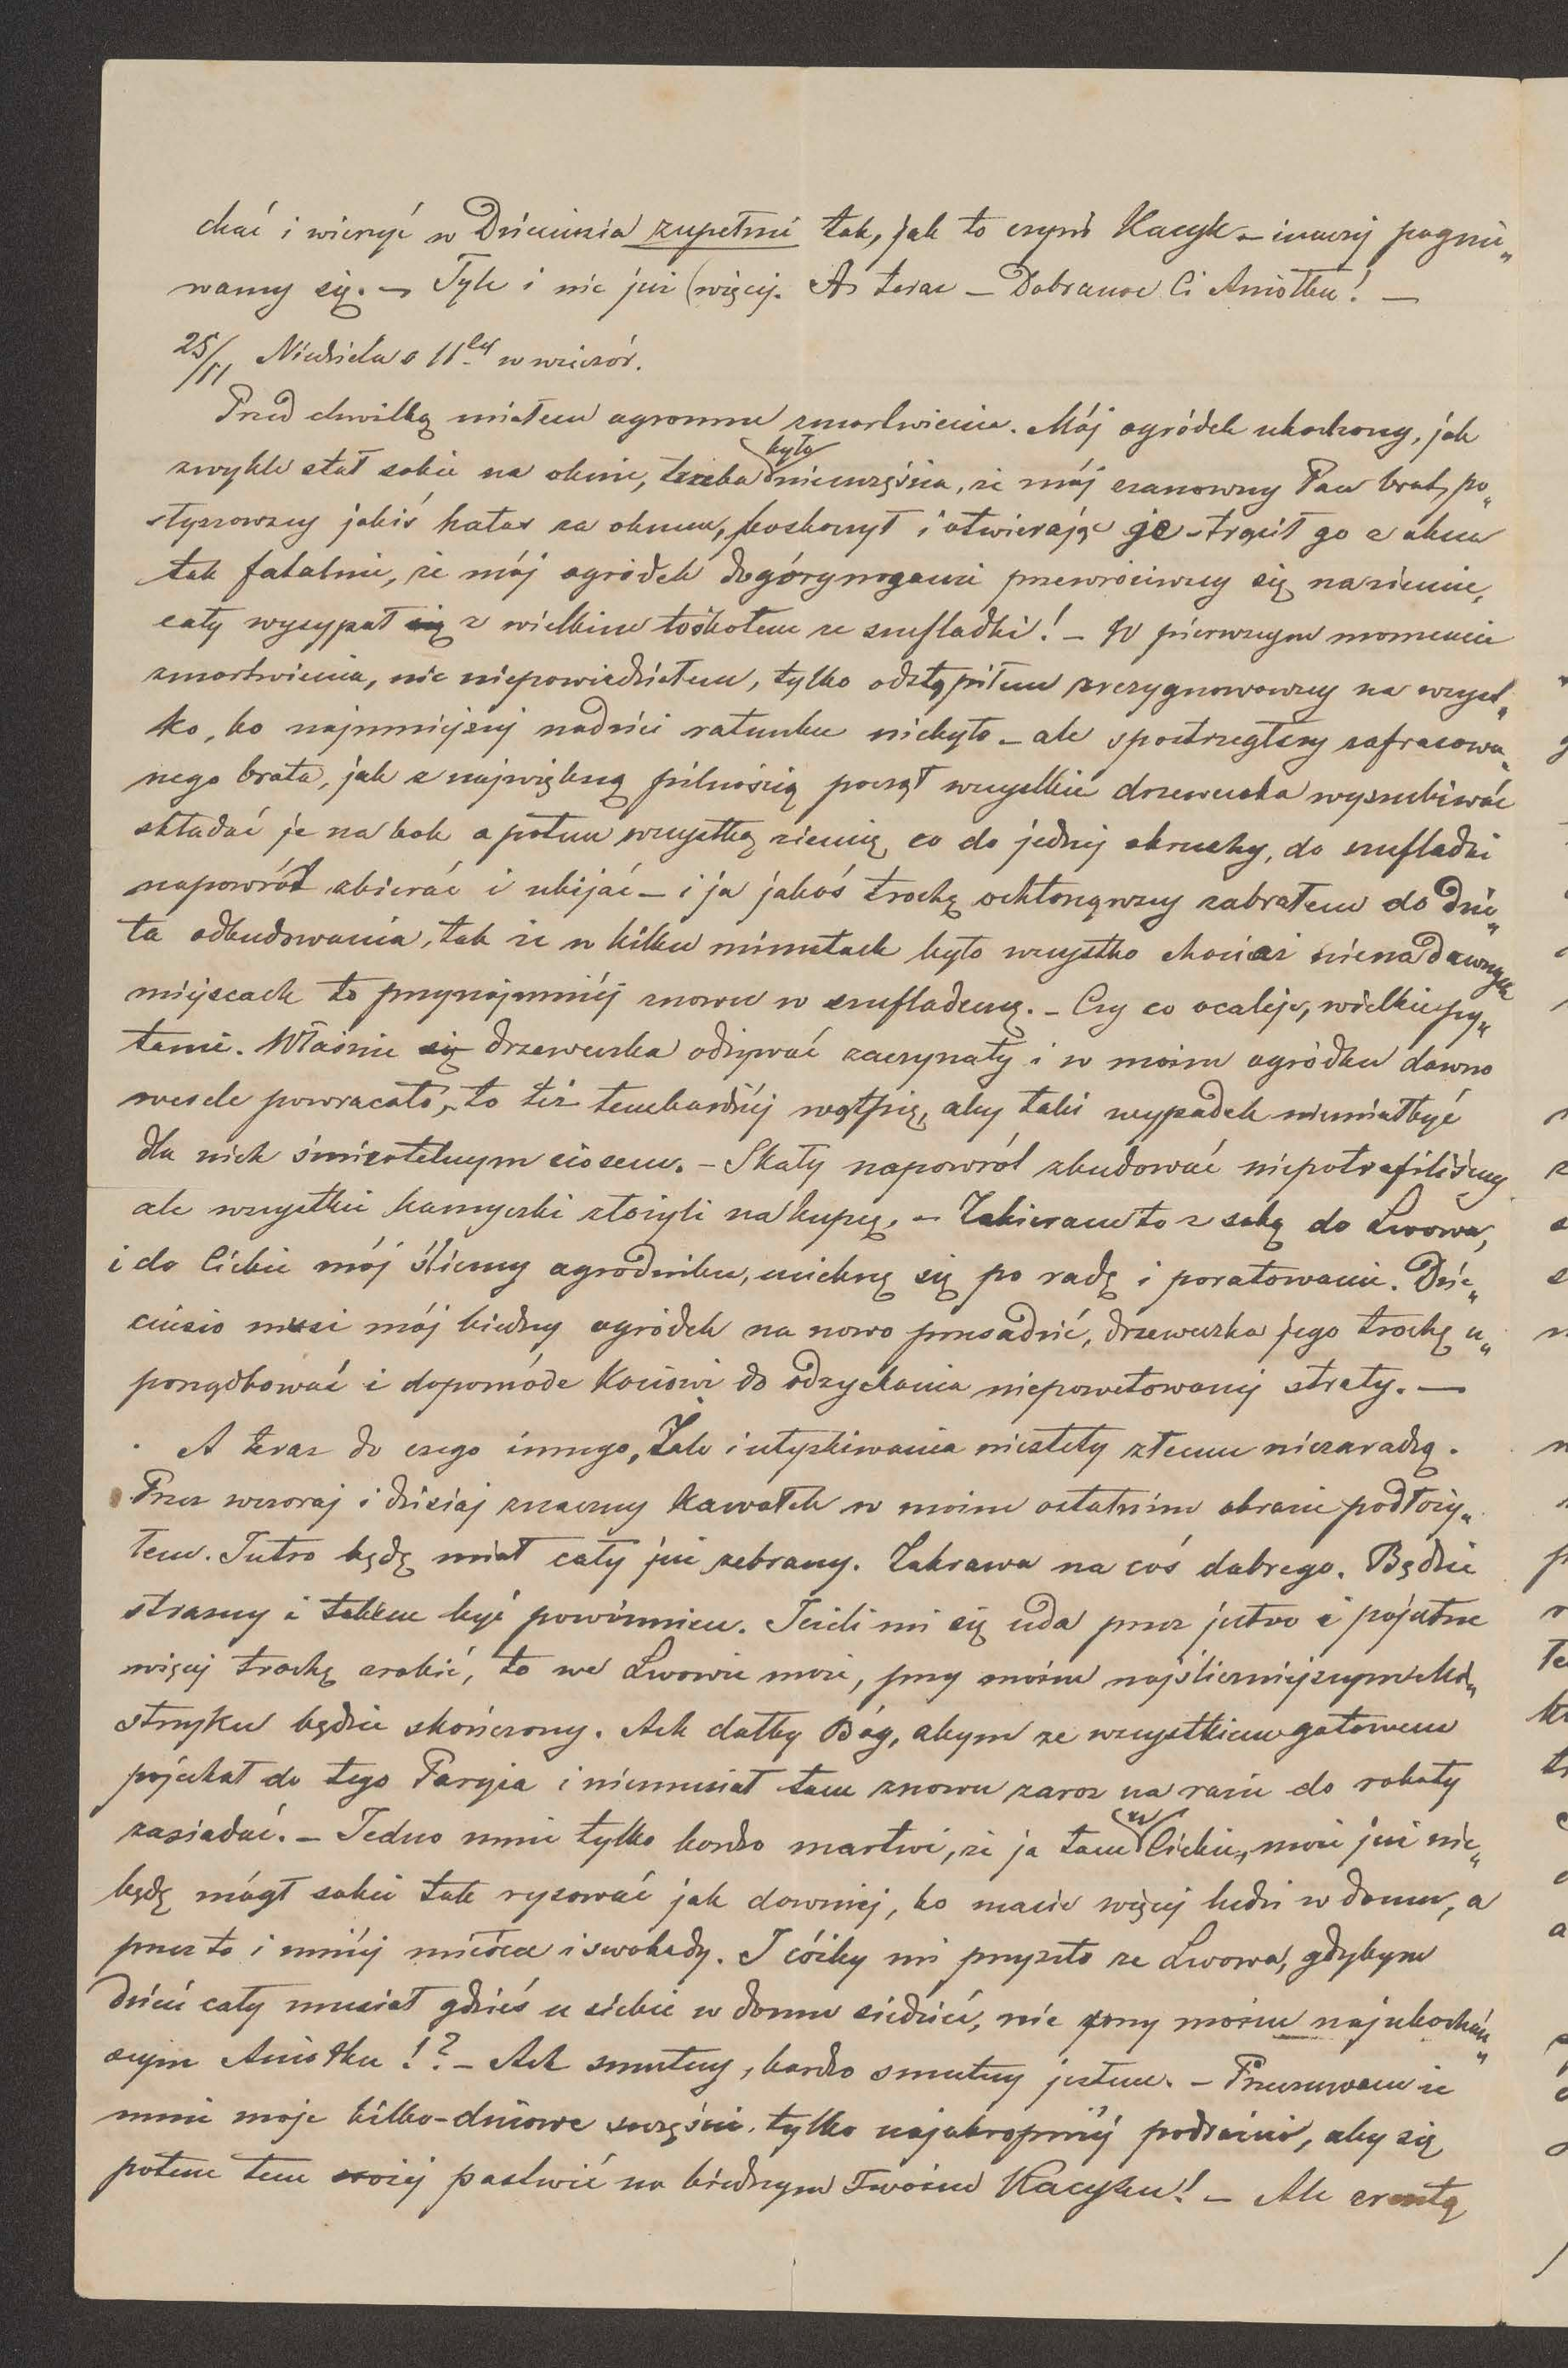 chać i wierzyć w Dzieciusia zupełnie tak, jak to czyni Kacyk – inaczej pognie„
wamy się. – Tyle i nic już więcej. A teraz – Dobranoc Ci Aniołku! –
25/11 Niedziela o 11tej w wieczór.
Przed chwilką miałem ogromne zmartwienie. Mój ogródek ukochany, jak
zwykle stał sobie na oknie, trzeba było nieszczęścia, że mój szanowny Pan brat, po„
słyszawszy jakiś hałas za oknem, poskoczył i otwierając je – trącił go z okna
tak fatalnie, że mój ogródek dogórynogami przewróciwszy się na ziemię,
cały wysypał się z wielkim łoskotem ze szufladki! – W pierwszym momencie
zmartwienia, nic niepowiedziałem, tylko odstąpiłem zrezygnowawszy na wszyst„
ko, bo najmniejszej nadziei ratunku niebyło – ale spostrzegłszy zafrasowa„
nego brata, jak z największą pilnością począł wszystkie drzeweczka wyszukiwać
składać je na bok a potem wszystką ziemię co do jednej okruchy, do szufladki
napowrót zbierać i ubijać – i ja jakoś trochę ochłonąwszy zabrałem do dzie„
ła odbudowania, tak że w kilku minutach było wszystko chociaż nie na dawnych
miejscach to przynajmniej znowu w szufladeczce. – Czy co ocaleje, wielkie py„
tanie. Właśnie się drzeweczka odżywać zaczynały i w moim ogródku dawno
wesele powracało, to też tembardziej wątpię, aby taki wypadek niemiał być
dla nich śmiertelnym ciosem. – Skały napowrót zbudować niepotrafiliśmy
ale wszystkie kamyczki złożyli na kupę. – Zabieram to z sobą do Lwowa,
i do Ciebie mój śliczny ogrodniku, ucieknę się po radę i poratowanie. Dzie„
ciusio musi mój biedny ogródek na nowo przesadzić, drzeweczka jego trochę u„
porządkować i dopomódz Kociowi do odzyskania niepowetowanej straty. –
A teraz do czego innego, Żale i utyskiwania niestety złemu niezaradzą.
Przez wczoraj i dzisiaj znaczny kawałek w moim ostatnim obrazie podłoży„
łem. Jutro będę miał cały już zebrany. Zakrawa na coś dobrego. Będzie
straszny i takim być powinnien. Jeżeli mi się uda przez jutro i pojutrze
więcej trochę zrobić, to we Lwowie może, przy moim najśliczniejszym Mi„
strzyku będzie skończony. Ach dałby Bóg, abym ze wszystkiem gotowem
pojechał do tego Paryża i niemusiał tam znowu zaraz na razie do roboty
zasiadać. – Jedno mnie tylko bardzo martwi, że ja tam u Ciebie, może już nie„
będę mógł sobie tak rysować jak dawniej, bo macie więcej ludzi w domu, a
przez to i mniej miejsca i swobody. I cóżby mi przyszło ze Lwowa, gdybym
dzień cały musiał gdzieś u siebie w domu siedzieć, nie przy moim najukochań„
szym Aniołku!? – Ach smutny, bardzo smutny jestem. – Przeczuwam że
mnie moje kilko-dniowe szczęście, tylko najokropniej podrażni, aby się
potem tem srożej pastwić na biednym Twoim Kacyku! – Ale zresztą